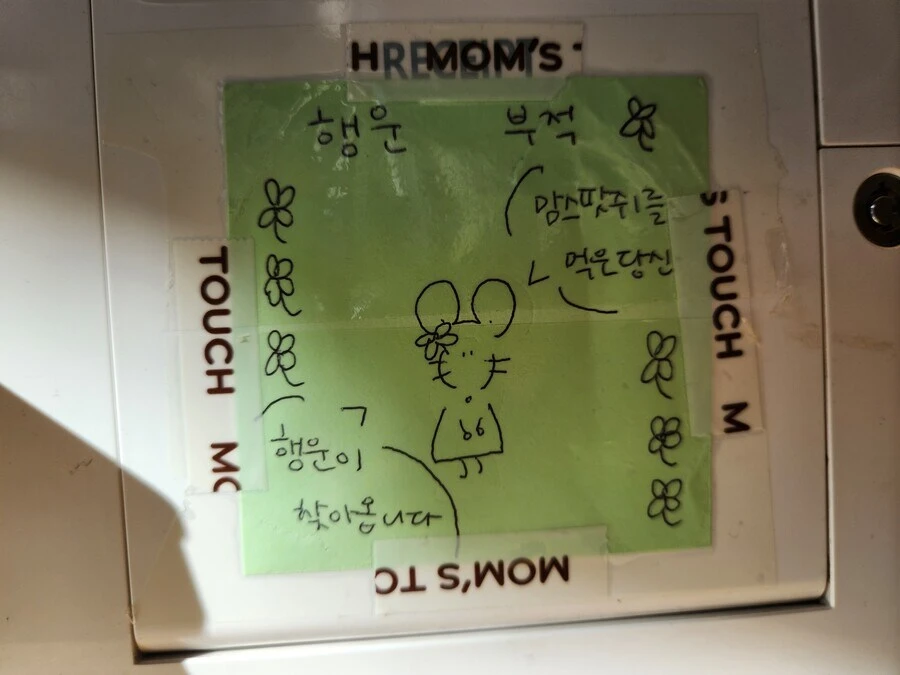 H MOM'S
RECEIPT
행운 부적
맘스팟쥐를
먹은 당신
행운이
찾아옵니다
TOUCH MO
S TOUCH M
MOM'S TO